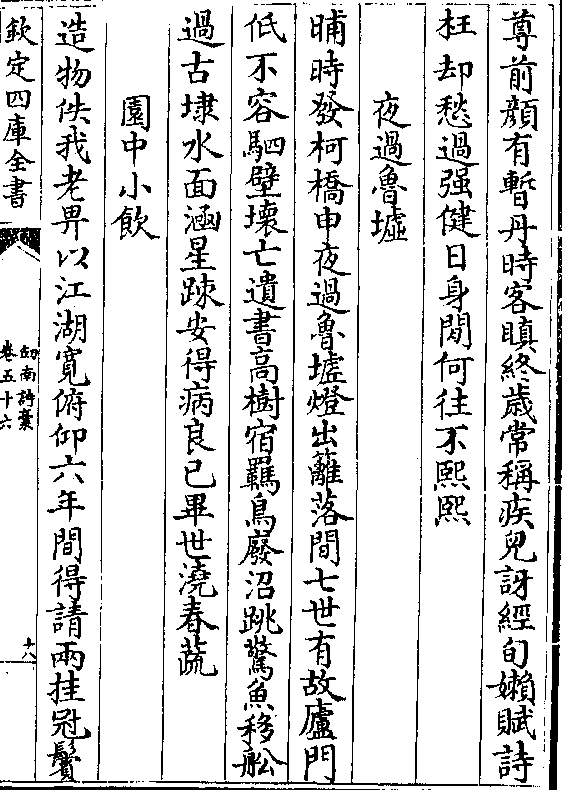 尊前顔有暫丹時客瞋終歳常稱疾兒訝經旬嬾賦詩
枉却愁過强健日身閑何往不熙熙
夜過魯墟
晡時發柯橋申夜過魯墟燈出籬落間七世有故廬門
低不容駟壁壞亡遺書高樹宿羈鳥廢沼跳驚魚移舩
過古埭水面涵星踈安得病良已畢世澆春蔬
園中小飲
造物佚我老畀以江湖寛俯仰六年間得請兩挂冠鬢
欽定四庫全書
劒南詩藁
卷五十六
十八